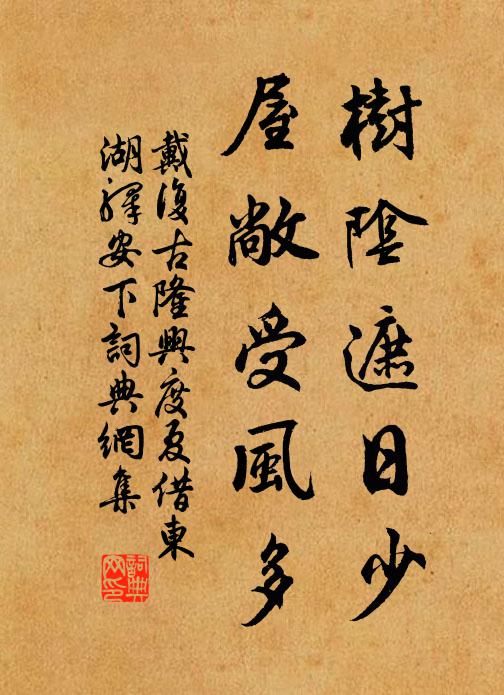 樹陰遮日少
屋敞受風多
戴復古隆興度夏借東
湖驛安下詞典網集
詞典网印